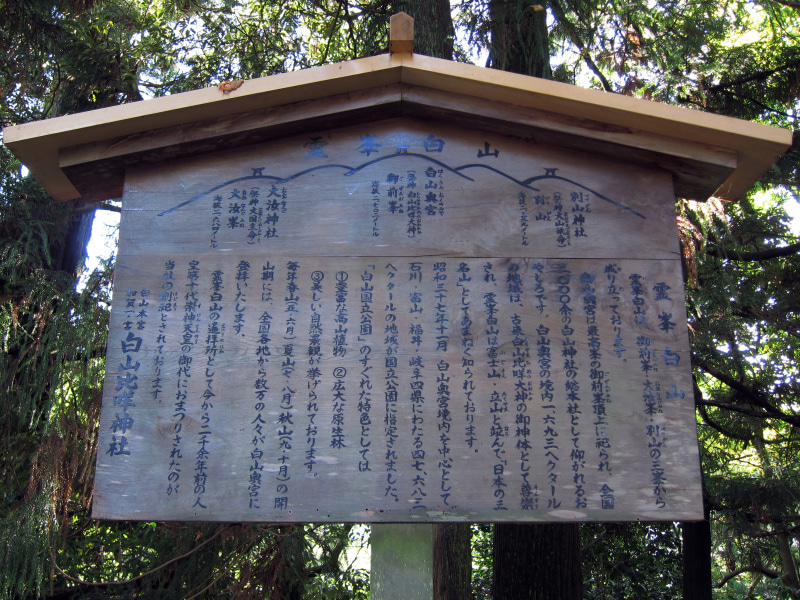 霊峯白山
別山神社
(祭神 大山祇命)
別山
白山奥宮
(祭神 白山比咩大神)
御前峯
海抜二七〇二メートル
大汝神社
(祭神 大国主命)
大汝峯
海抜二六八四メートル
霊峯白山
霊峯白山は、御前峯、大汝峯、別山の三峯から
成り立っております。
白山奥宮は最高峯の御前峯頂上に祀られ、全国
三〇〇〇余の白山神社の総本社として仰がれるお
やしろです。白山奥宮の境内一六九三ヘクタール
の地域は、古来白山比咩大神の御神体として尊崇
され、霊峯白山は富士山・立山と並んで、日本の三
名山としてあまねく知られております。
昭和三十七年十一月、白山奥宮境内を中心として
石川・富山・福井・岐阜四県にわたる四七、六八二
ヘクタールの地域が国立公園に指定されました。
「白山国立公園」のすぐれた特色としては
①豊富な高山植物 ②広大な原生林
③美しい自然景観が挙げられております。
毎年春山(五・六月)夏山(七・八月)秋山(九・十月)の開
山期には、全国各地から数万の人々が白山奥宮に
登拝いたします。
霊峯白山の遙拝所として今から二千余年前の人
皇第十代崇神天皇の御代におまつりされたのが
当社の創祀とされております。
白山本宮
加賀一ノ宮 白山比咩神社